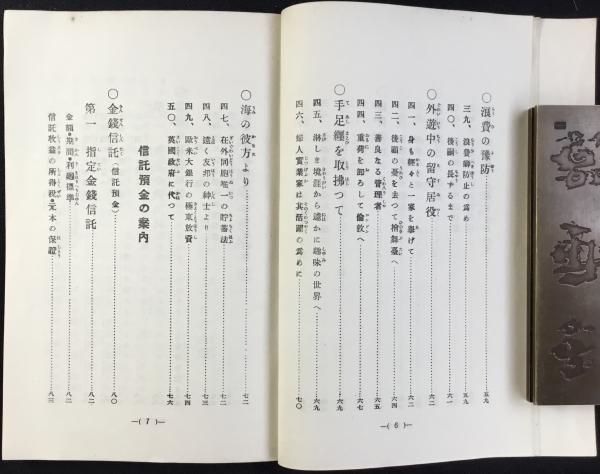 ○浪費の豫防………五九
三九、浪費癖防止の爲め………五九
四〇、後嗣の長ずるまで………六一
○外遊中の留守居役………六二
四一、身も輕く一家を擧げて………六二
四二、後顧の憂を去つて檜舞臺へ………六四
四三、善良なる管理者………六五
四四、重荷を卸ろして倫敦へ………六六
○手足纏を取拂つて………六九
四五、淋しき境涯から遙かに趣味の世界へ………六九
四六、婦人實業家は其活躍の爲めに………七〇
—( 6 )—
○海の彼方より………七二
四七、在外同胞唯一の貯蓄法………七二
四八、遠く友邦の紳士より………七三
四九、歐米大銀行の極東放資………七四
五〇、英國政府に代つて………七六
信託預金の案内
○金錢信託(信託預金)………八〇
第一 指定金錢信託………八二
金額●期間●利廻標準………八二
信託收益の所得税●元本の保證………八三
—( 7 )—